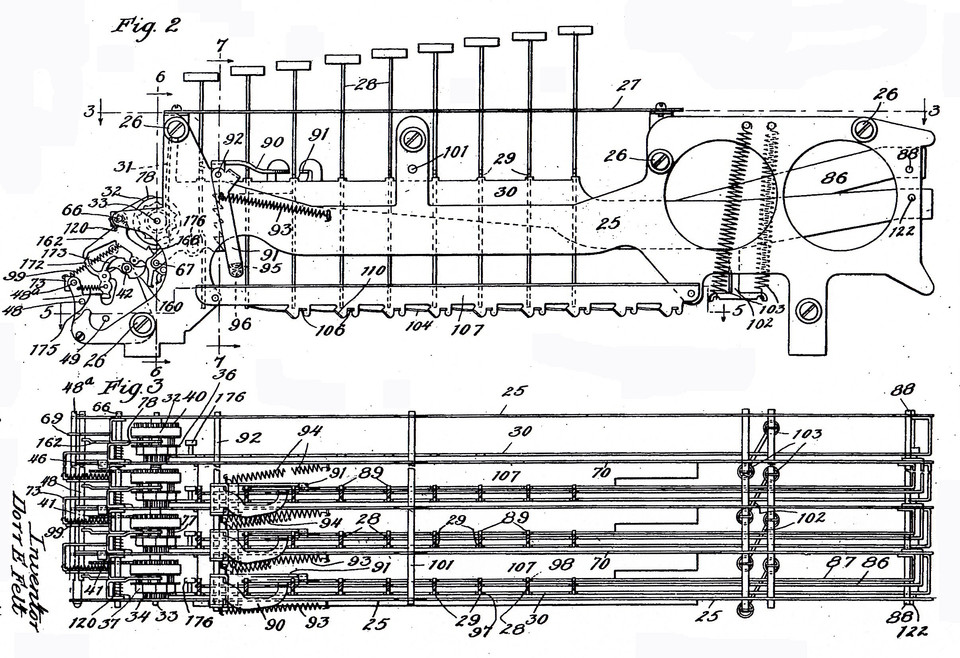 Fig. 2
7
6
3
26
28
92
90
91
27
26
3
31
78
32
33
66
120
162
173
172
99
73
48ª
48
5
175
49
26
6
176
166
67
42
160
93
91
95
96
7
101
29
30
25
110
106
104
107
26
86
88
122
5
102
103
Fig. 3
48ª
66
78
32
40
36
176
92
94
25
30
88
69
162
46
48
73
41
99
77
91
89
107
70
103
94
28
29
89
102
93
91
101
107
98
70
87
86
41
120
37
34
33
176
90
93
25
29
97
28
30
25
88
122
Inventor
Dorr E Felt